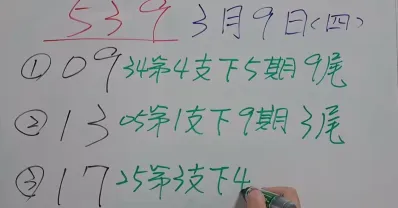 539 3月9日(四)
① 09 34第4支下5期9尾
② 13 05第1支下9期3尾
③ 17 25第3支下4